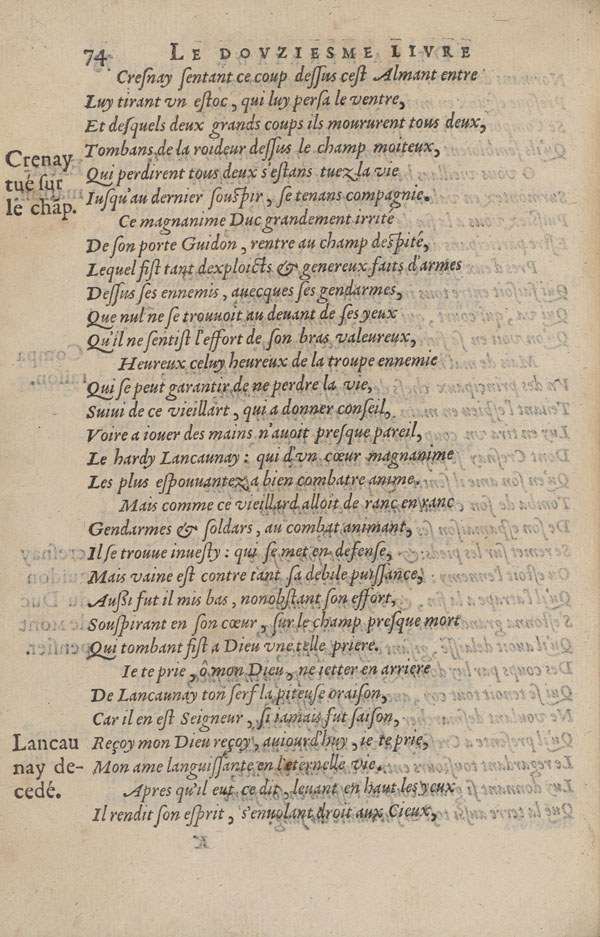 74 LE DOVZIESME LIVRE
Cresnay sentant ce coup dessus cest Almant entre
Luy tirant vn estoc, qui luy persa le ventre,
Et desquels deux grands coups ils moururent tous deux,
Tombans de la roideur dessus le champ moiteux,
Crenay
tué sur
le chāp.
Qui perdirent tous deux s'estans tuez la vie
Iusqu'au dernier souspir, se tenans compagnie.
Ce magnanime Duc grandement irrité
De son porte Guidon, rentre au champ despité,
Lequel fist tant dexploicts & genereux faits d'armes
Dessus ses ennemis, auecques ses gendarmes,
Que nul ne se trouuoit au deuant de ses yeux
Qu'il ne sentist l'effort de son bras valeureux,
Heureux celuy heureux de la troupe ennemie
Qui se peut garantir de ne perdre la vie,
Suiui de ce vieillart, qui a donner conseil,
Voire a iouer des mains n'auoit presque pareil,
Le hardy Lancaunay: qui d'vn cœur magnanime
Les plus espouuantez a bien combatre anime.
Mais comme ce vieillard alloit de ranc en ranc
Gendarmes & soldars, au combat animant,
Il se trouue inuesty: qui se met en defense,
Mais vaine est contre tant sa debile puissance,
Aussi fut il mis bas, nonobstant son effort,
Souspirant en son cœur, sur le champ presque mort
Qui tombant fist a Dieu vne telle priere.
Ie te prie, ô mon Dieu, ne ietter en arriere
De Lancaunay ton serf la piteuse oraison,
Car il en est Seigneur, si iamais fut saison,
Lancau
nay de-
cedé.
Reçoy mon Dieu reçoy, auiourd'huy, ie te prie,
Mon ame languissante en l'eternelle vie.
Apres qu'il eut ce dit, leuant en haut les yeux
Il rendit son esprit, s'enuolant droit aux Cieux,